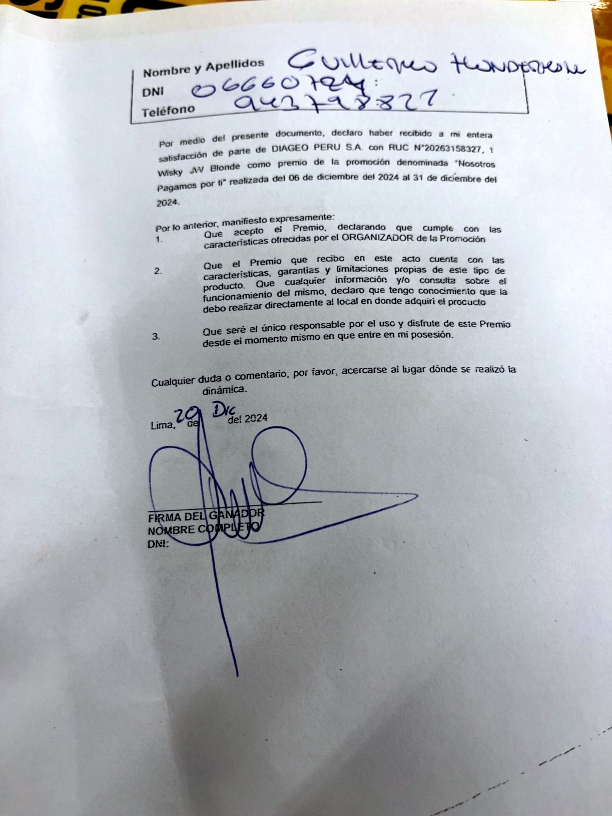 Nombre y Apellidos Guillermo
DNI
Teléfono 943798827
Por medio del presente documento, declaro haber recibido a mi entera
satisfacción de parte de DIAGEO PERU S.A. con RUC N°20263158327, 1
Wisky JW Blonde como premio de la promoción denominada "Nosotros
Pagamos por ti" realizada del 06 de diciembre del 2024 al 31 de diciembre del
2024.
Por lo anterior, manifiesto expresamente:
1. Que acepto el Premio, declarando que cumple con las
características ofrecidas por el ORGANIZADOR de la Promoción
2. Que el Premio que recibo en este acto cuenta con las
características, garantías y limitaciones propias de este tipo de
producto. Que cualquier información y/o consulta sobre el
funcionamiento del mismo, declaro que tengo conocimiento que la
debo realizar directamente al local en donde adquirí el producto
3. Que seré el único responsable por el uso y disfrute de este Premio
desde el momento mismo en que entre en mi posesión.
Cualquier duda o comentario, por favor, acercarse al lugar dónde se realizó la
dinámica.
Lima, 29 de Dic del 2024
FIRMA DEL GANADOR
NOMBRE COMPLETO
DNI: